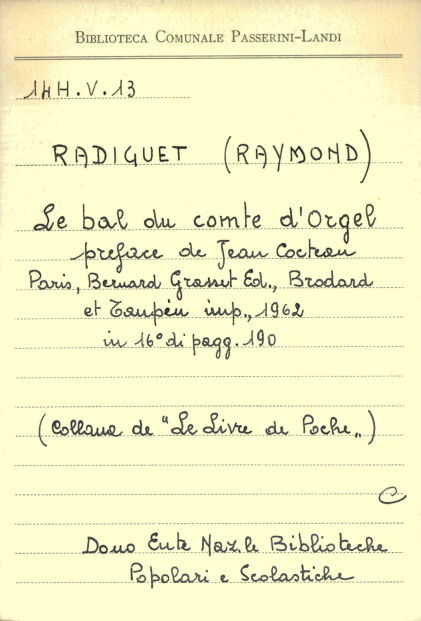 BIBLIOTECA COMUNALE PASSERINI-LANDI
1HH.V.13
RADIGUET (RAYMOND)
Le bal du comte d'Orgel
preface de Jean Cocteau
Paris, Bernard Grasset Ed., Brodard
et Taupin imp., 1962
in 16° di pagg. 190
(Collana de "Le Livre de Poche„)
C
Dono Ente Naz.le Biblioteche
Popolari e Scolastiche